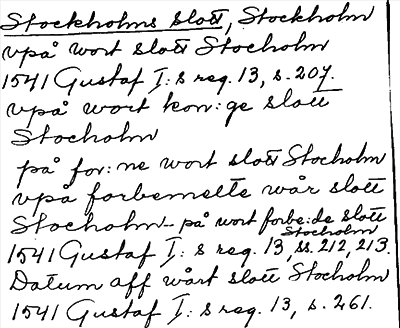 Stockholms slott, Stockholm
vpå wort slott Stocholm
1541 Gustaf I:s reg. 13, s. 207.
vpå wort kon:ge slott
Stocholm
på for:ne wort slott Stocholm
vpå forbemelte wår slott
Stocholm - på wort forbe:de slott
Stocholm
1541 Gustaf I:s reg. 13, ss. 212, 213.
Datum aff wårt slott Stocholm
1541 Gustaf I:s reg. 13, s. 261.